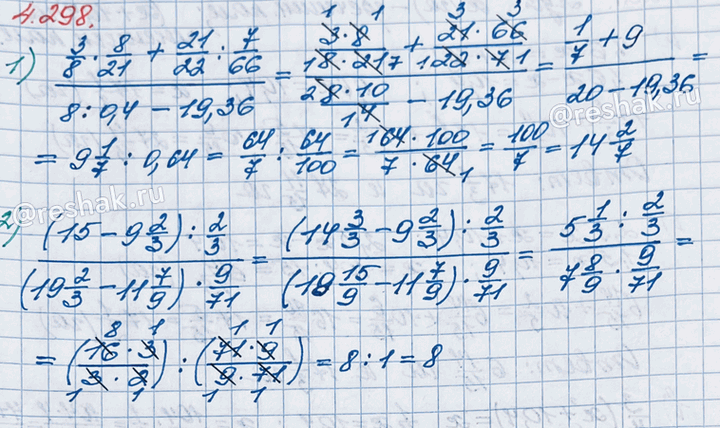 4.298.
1) (3/8 · 8/21 + 21/22 : 7/66) / (8 : 0,4 − 19,36) = ((3·8)/(8·21) + (21·66)/(22·7)) / ((8·10)/4 − 19,36) = (1/7 + 9) / (20 − 19,36) =
= 9 1/7 : 0,64 = 64/7 : 64/100 = (64·100)/(7·64) = 100/7 = 14 2/7
2) ((15 − 9 2/3) : 2/3) / ((19 2/3 − 11 7/9) · 9/71) = ((14 3/3 − 9 2/3) : 2/3) / ((18 15/9 − 11 7/9) · 9/71) = (5 1/3 : 2/3) / (7 8/9 · 9/71) =
= ((16·3)/(3·2)) : ((71·9)/(9·71)) = 8 : 1 = 8
@reshak.ru
@reshak.ru